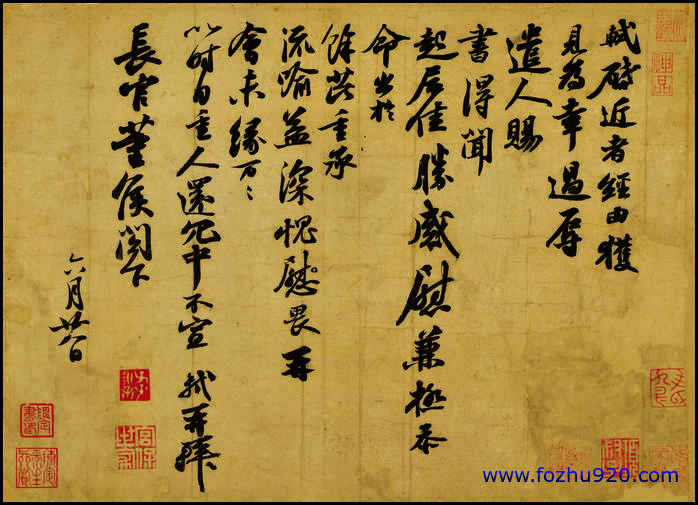 軾啟近者經由獲
見為幸過辱
遣人賜
書得聞
起居佳勝感慰兼極忝
命出於
餘芘重承
流喻益深愧慰畏再
會未緣万〻
以時自重人還冗中不宣 軾再拜
長官董侯閣下
六月廿八日
神品
www.fozhu920.com